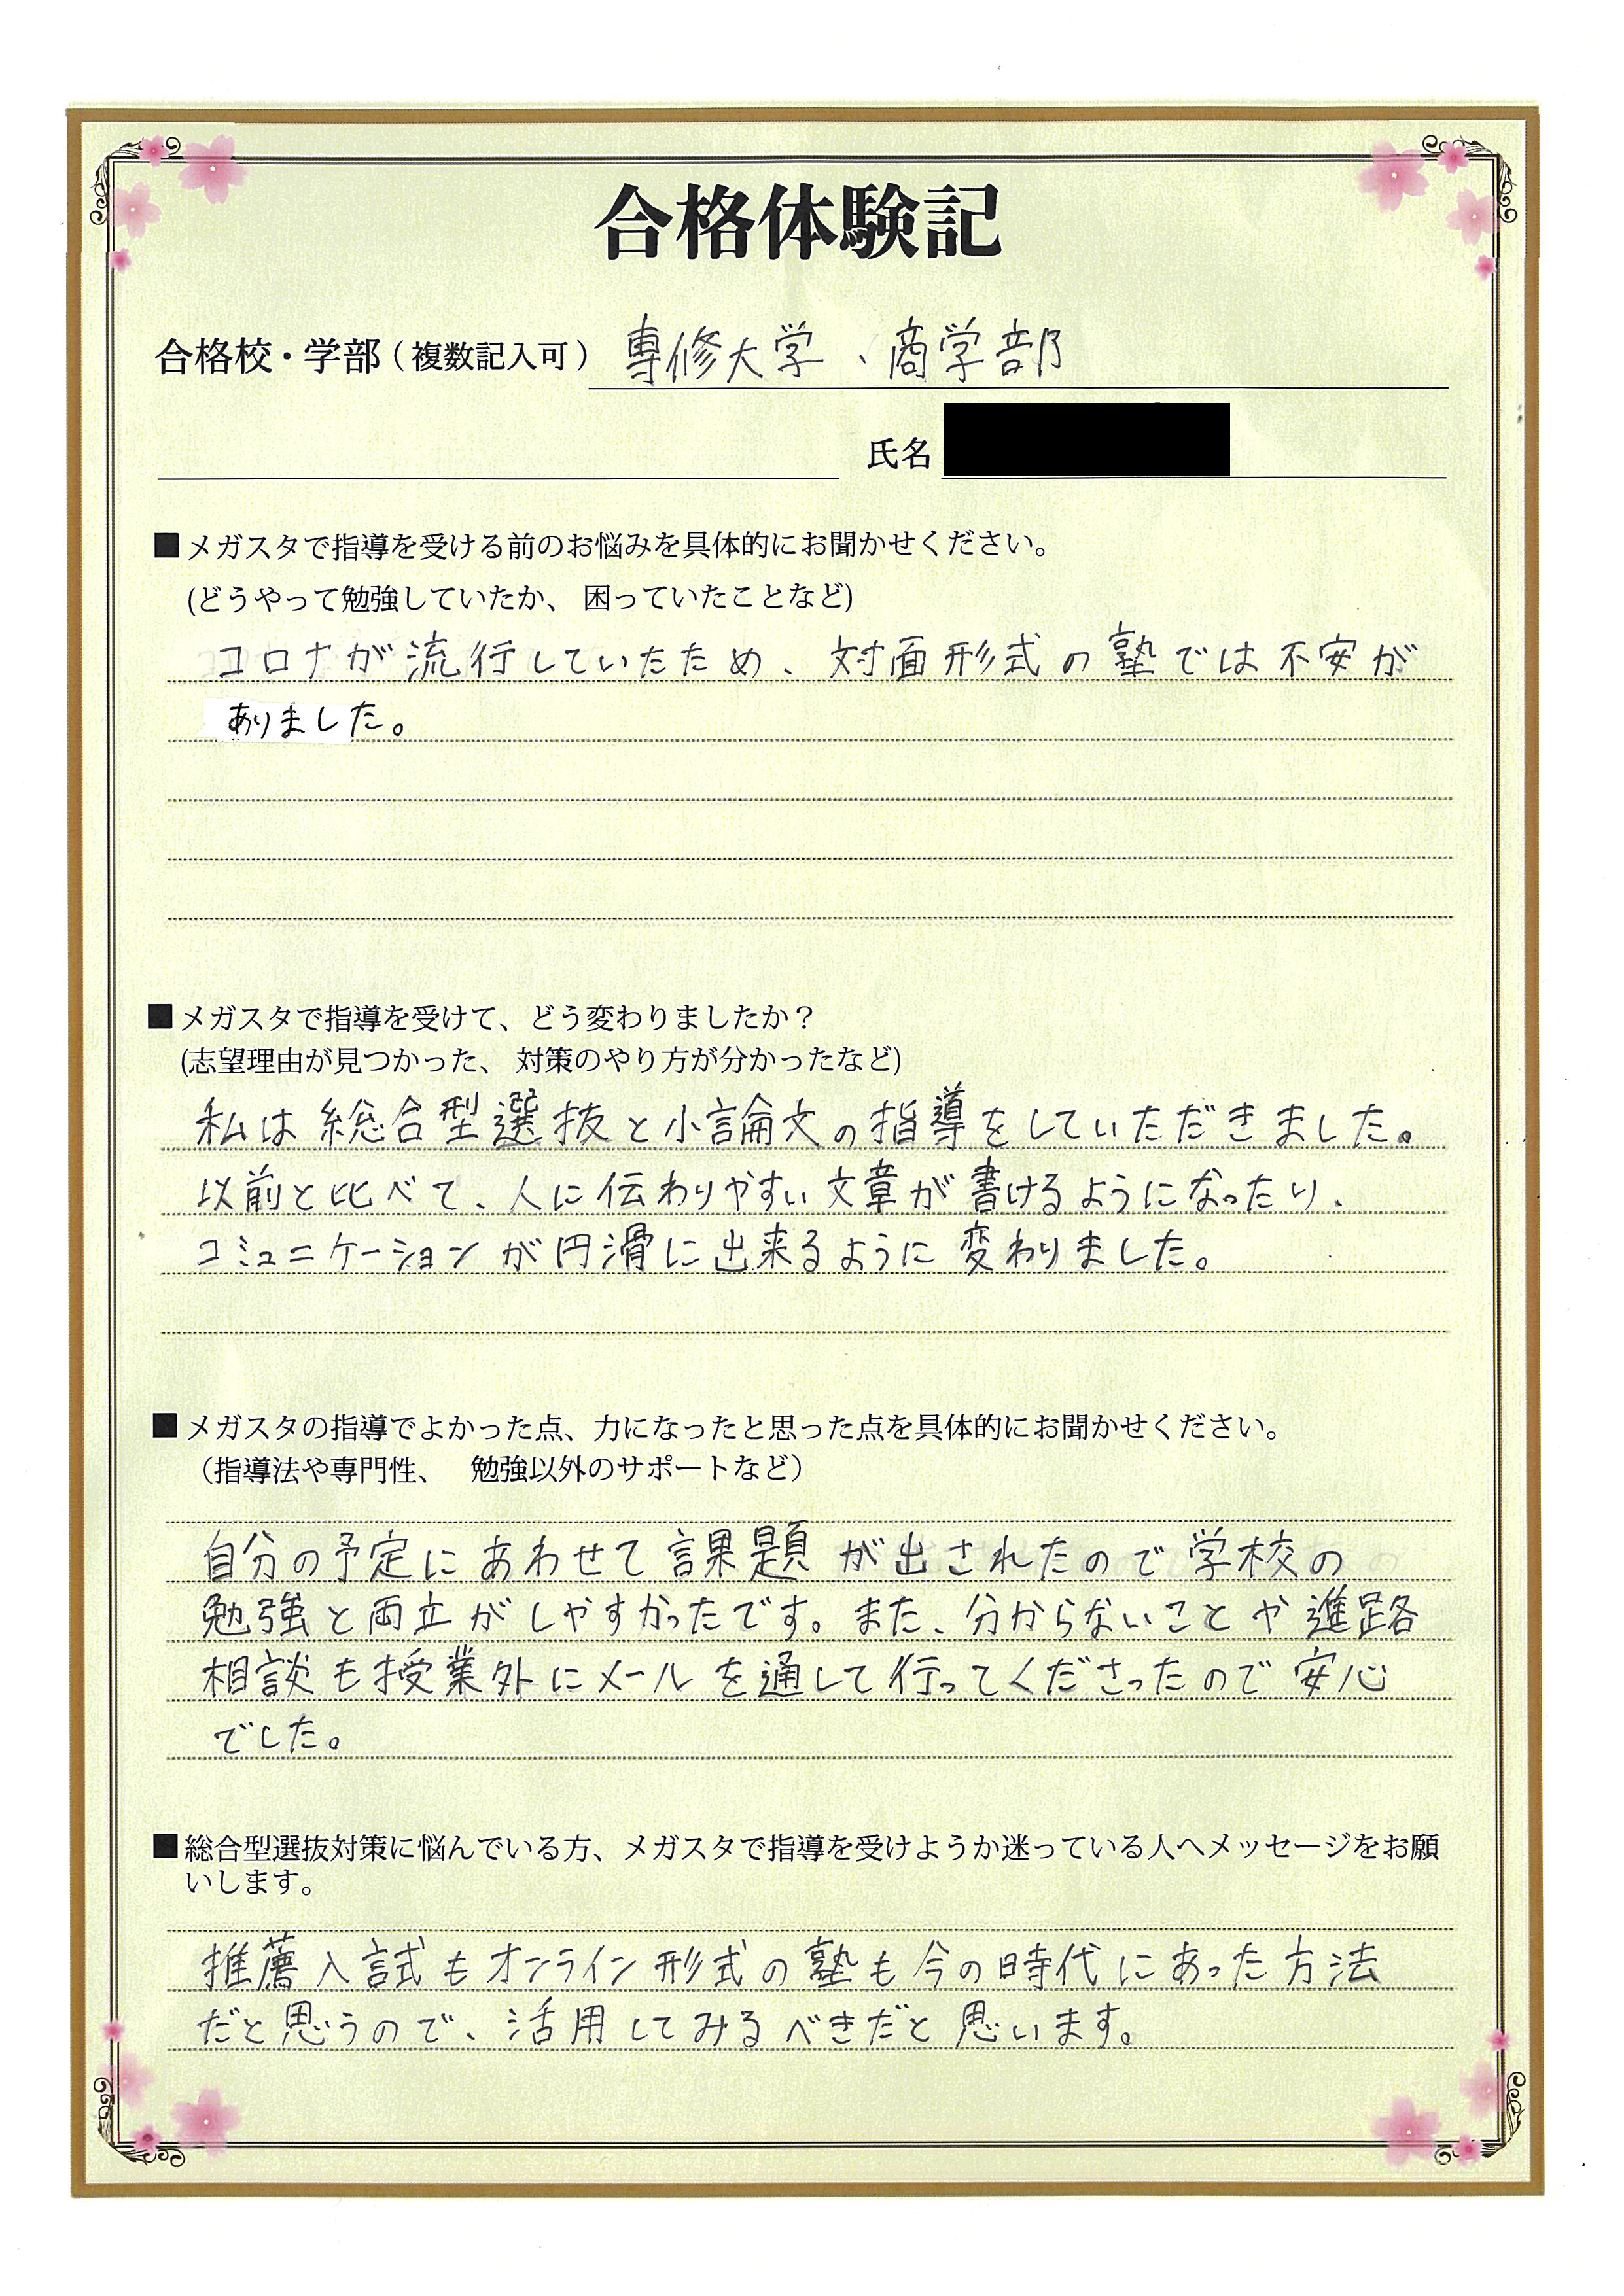 合格体験記
合格校・学部（複数記入可） 専修大学、商学部
氏名
■メガスタで指導を受ける前のお悩みを具体的にお聞かせください。
(どうやって勉強していたか、 困っていたことなど)
コロナが流行していたため、対面形式の塾では不安が
ありました。
■メガスタで指導を受けて、どう変わりましたか？
(志望理由が見つかった、 対策のやり方が分かったなど)
私は総合型選抜と小論文の指導をしていただきました。
以前と比べて、人に伝わりやすい文章が書けるようになったり、
コミュニケーションが円滑に出来るように変わりました。
■メガスタの指導でよかった点、力になったと思った点を具体的にお聞かせください。
（指導法や専門性、 勉強以外のサポートなど）
自分の予定にあわせて課題が出されたので学校の
勉強と両立がしやすかったです。また、分からないことや進路
相談も授業外にメールを通して行ってくださったので安心
でした。
■総合型選抜対策に悩んでいる方、メガスタで指導を受けようか迷っている人へメッセージをお願
いします。
推薦入試もオンライン形式の塾も今の時代にあった方法
だと思うので、活用してみるべきだと思います。